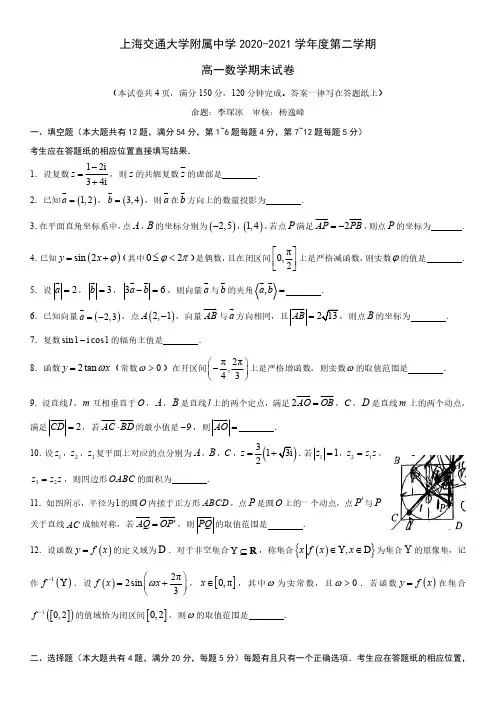 上海交通大学附属中学2020-2021学年度第二学期
高一数学期末试卷
(本试卷共4页,满分150分,120分钟完成。答案一律写在答题纸上)
命题:李琛冰 审核:杨逸峰
一、填空题(本大题共有12题,满分54分,第1~6题每题4分,第7~12题每题5分)
考生应在答题纸的相应位置直接填写结果.
1.设复数 z=(1-2i)/(3+4i),则z的共轭复数z̄的虚部是 .
2.已知 a⃗=(1,2),b⃗=(3,4),则a⃗在b⃗方向上的数量投影为 .
3.在平面直角坐标系中,点A,B的坐标分别为(-2,5),(1,4),若点P满足AP⃗=-2PB⃗,则点P的坐标为 .
4.已知 y=sin(2x+φ)(其中0≤φ<2π)是偶数,且在闭区间[0,π/2]上是严格减函数,则实数φ的值是 .
5.设|a⃗|=2,|b⃗|=3,|3a⃗-b⃗|=6,则向量a⃗与b⃗的夹角⟨a⃗,b⃗⟩= .
6.已知向量a⃗=(-2,3),点A(2,-1),向量AB⃗与a⃗方向相同,且|AB⃗|=2√13,则点B的坐标为 .
7.复数 sin1-icos1的辐角主值是 .
8.函数 y=2tanωx(常数ω>0)在开区间(-π/4,2π/3)上是严格增函数,则实数ω的取值范围是 .
9.设直线l,m互相垂直于O,A,B是直线l上的两个定点,满足2AO⃗=OB⃗,C,D是直线m上的两个动点,
满足|CD⃗|=2,若AC⃗·BD⃗的最小值是-9,则|AO⃗|= .
10.设z₁,z₂,z₃复平面上对应的点分别为A,B,C,z=3/2(1+√3i).若|z₁|=1,z₂=z₁z,
z₃=z₂z,则四边形OABC的面积为 .
11.如图所示,半径为1的圆O内接于正方形ABCD,点P是圆O上的一个动点,点P′与P
关于直线AC成轴对称,若AQ⃗=OP′⃗,则|PQ⃗|的取值范围是 .
12.设函数 y=f(x)的定义域为D.对于非空集合Y⊆R,称集合{x|f(x)∈Y,x∈D}为集合Y的原像集,记
作f⁻¹(Y).设f(x)=2sin(ωx+2π/3),x∈[0,π],其中ω为实常数,且ω>0.若函数 y=f(x)在集合
f⁻¹([0,2])的值域恰为闭区间[0,2],则ω的取值范围是 .
二、选择题(本大题共有4题,满分20分,每题5分)每题有且只有一个正确选项.考生应在答题纸的相应位置,